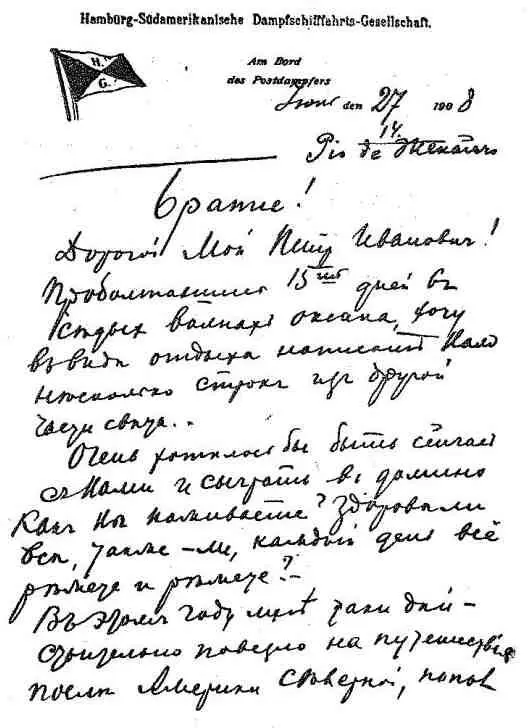 Hamburg-Südamerikanische Dampfschifffahrts-Gesellschaft.
H.
G.
Am Bord
des Postdampfers
den 27 1908
14.
Rio de
Братие!
Дорогой Мой Петр Иванович!
Проболтавшись 15 дней въ
волнахъ океана, хочу
въ видѣ отдыха написать Вамъ
нѣсколько строкъ изъ другой
части свѣта..
Очень хотелось бы быть сейчасъ
съ Вами и сыграть въ домино
Какъ Вы поживаете? Здоровы ли
все, также-ли, каждый день всё
рѣжете и рѣжете?-
Въ этомъ году мнѣ таки дей-
ствительно повезло на путешествія
послѣ Америки Сѣверной, попов